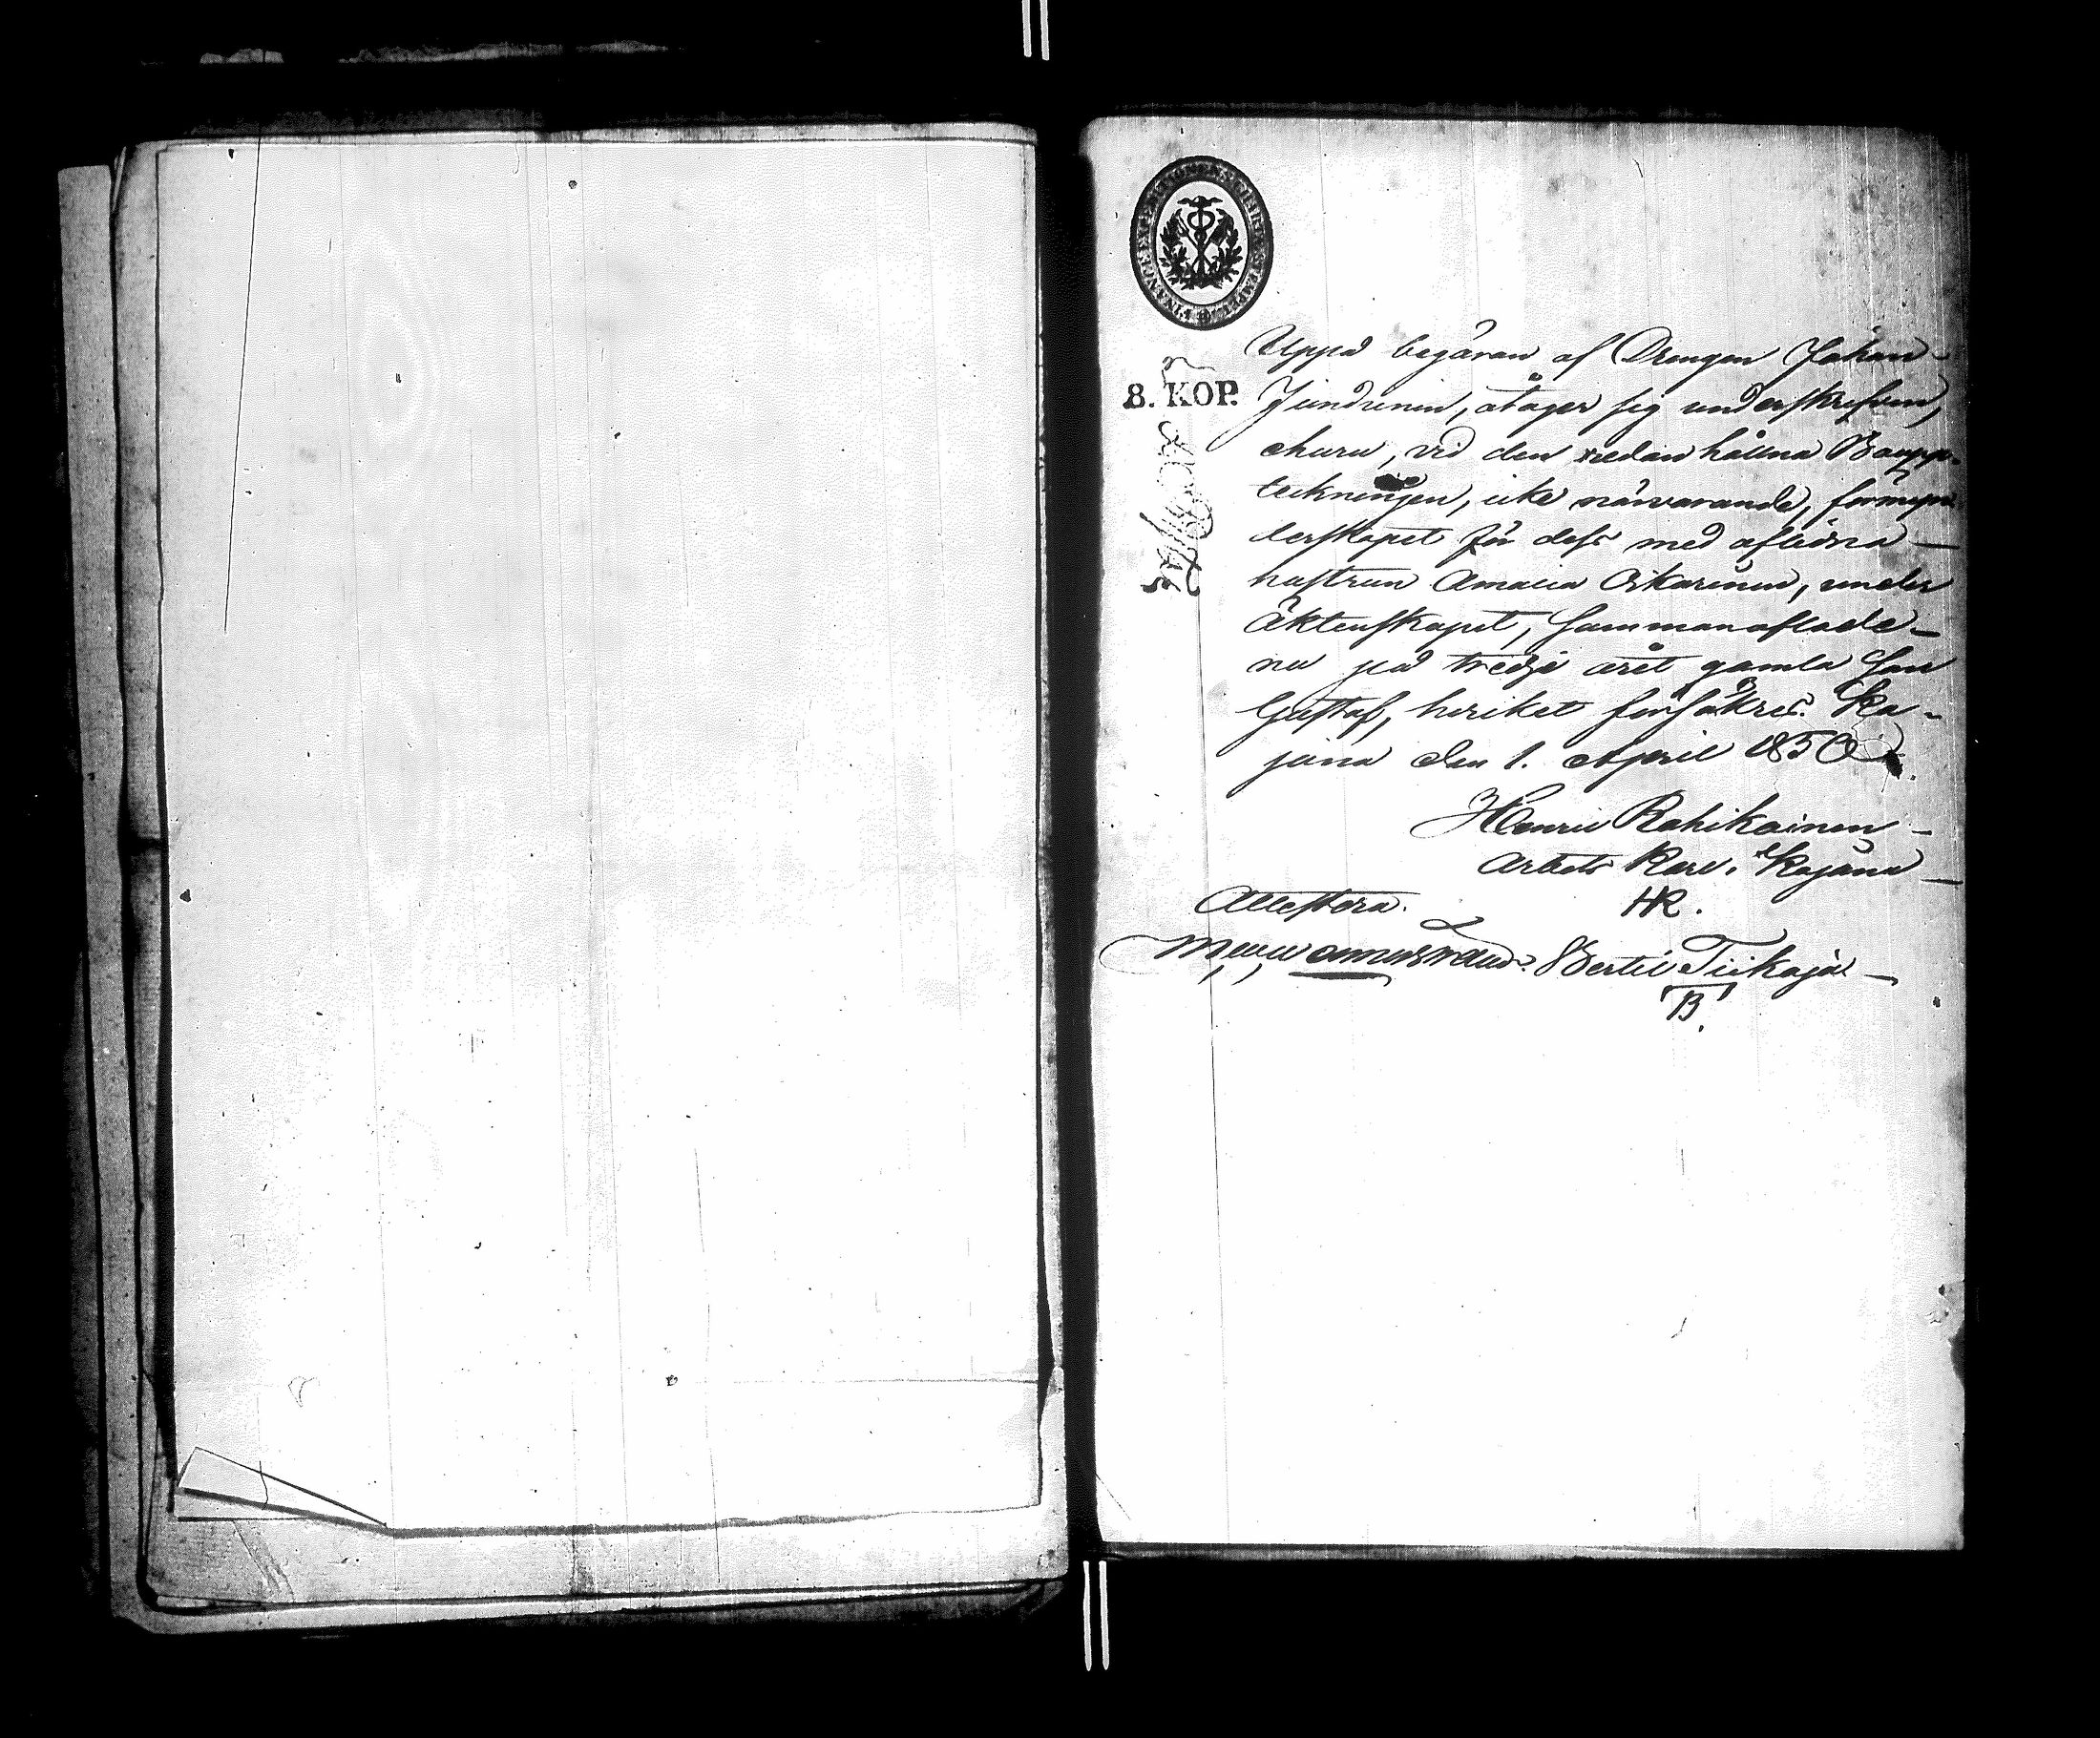 8. KOP.
Uppå begäran af Drengen Johan
Jundunin, åtager sig underskrifven,
ehuru, vid den redan hållna Boupp-
teckningen, icke närvarande, förmyn-
derskapet för dess med aflidna
hustrun Amalia Oikarinen, under
Äktenskapet, sammanaflade
nu på tredje året gamla Son
Gustaf, hvilket försäkras. Ka-
jana den 1. April 1850.
Henric Rahikainen
Arbets Karl. Kajana
HR.
Attestera.
Bertil Tiikaja
B.